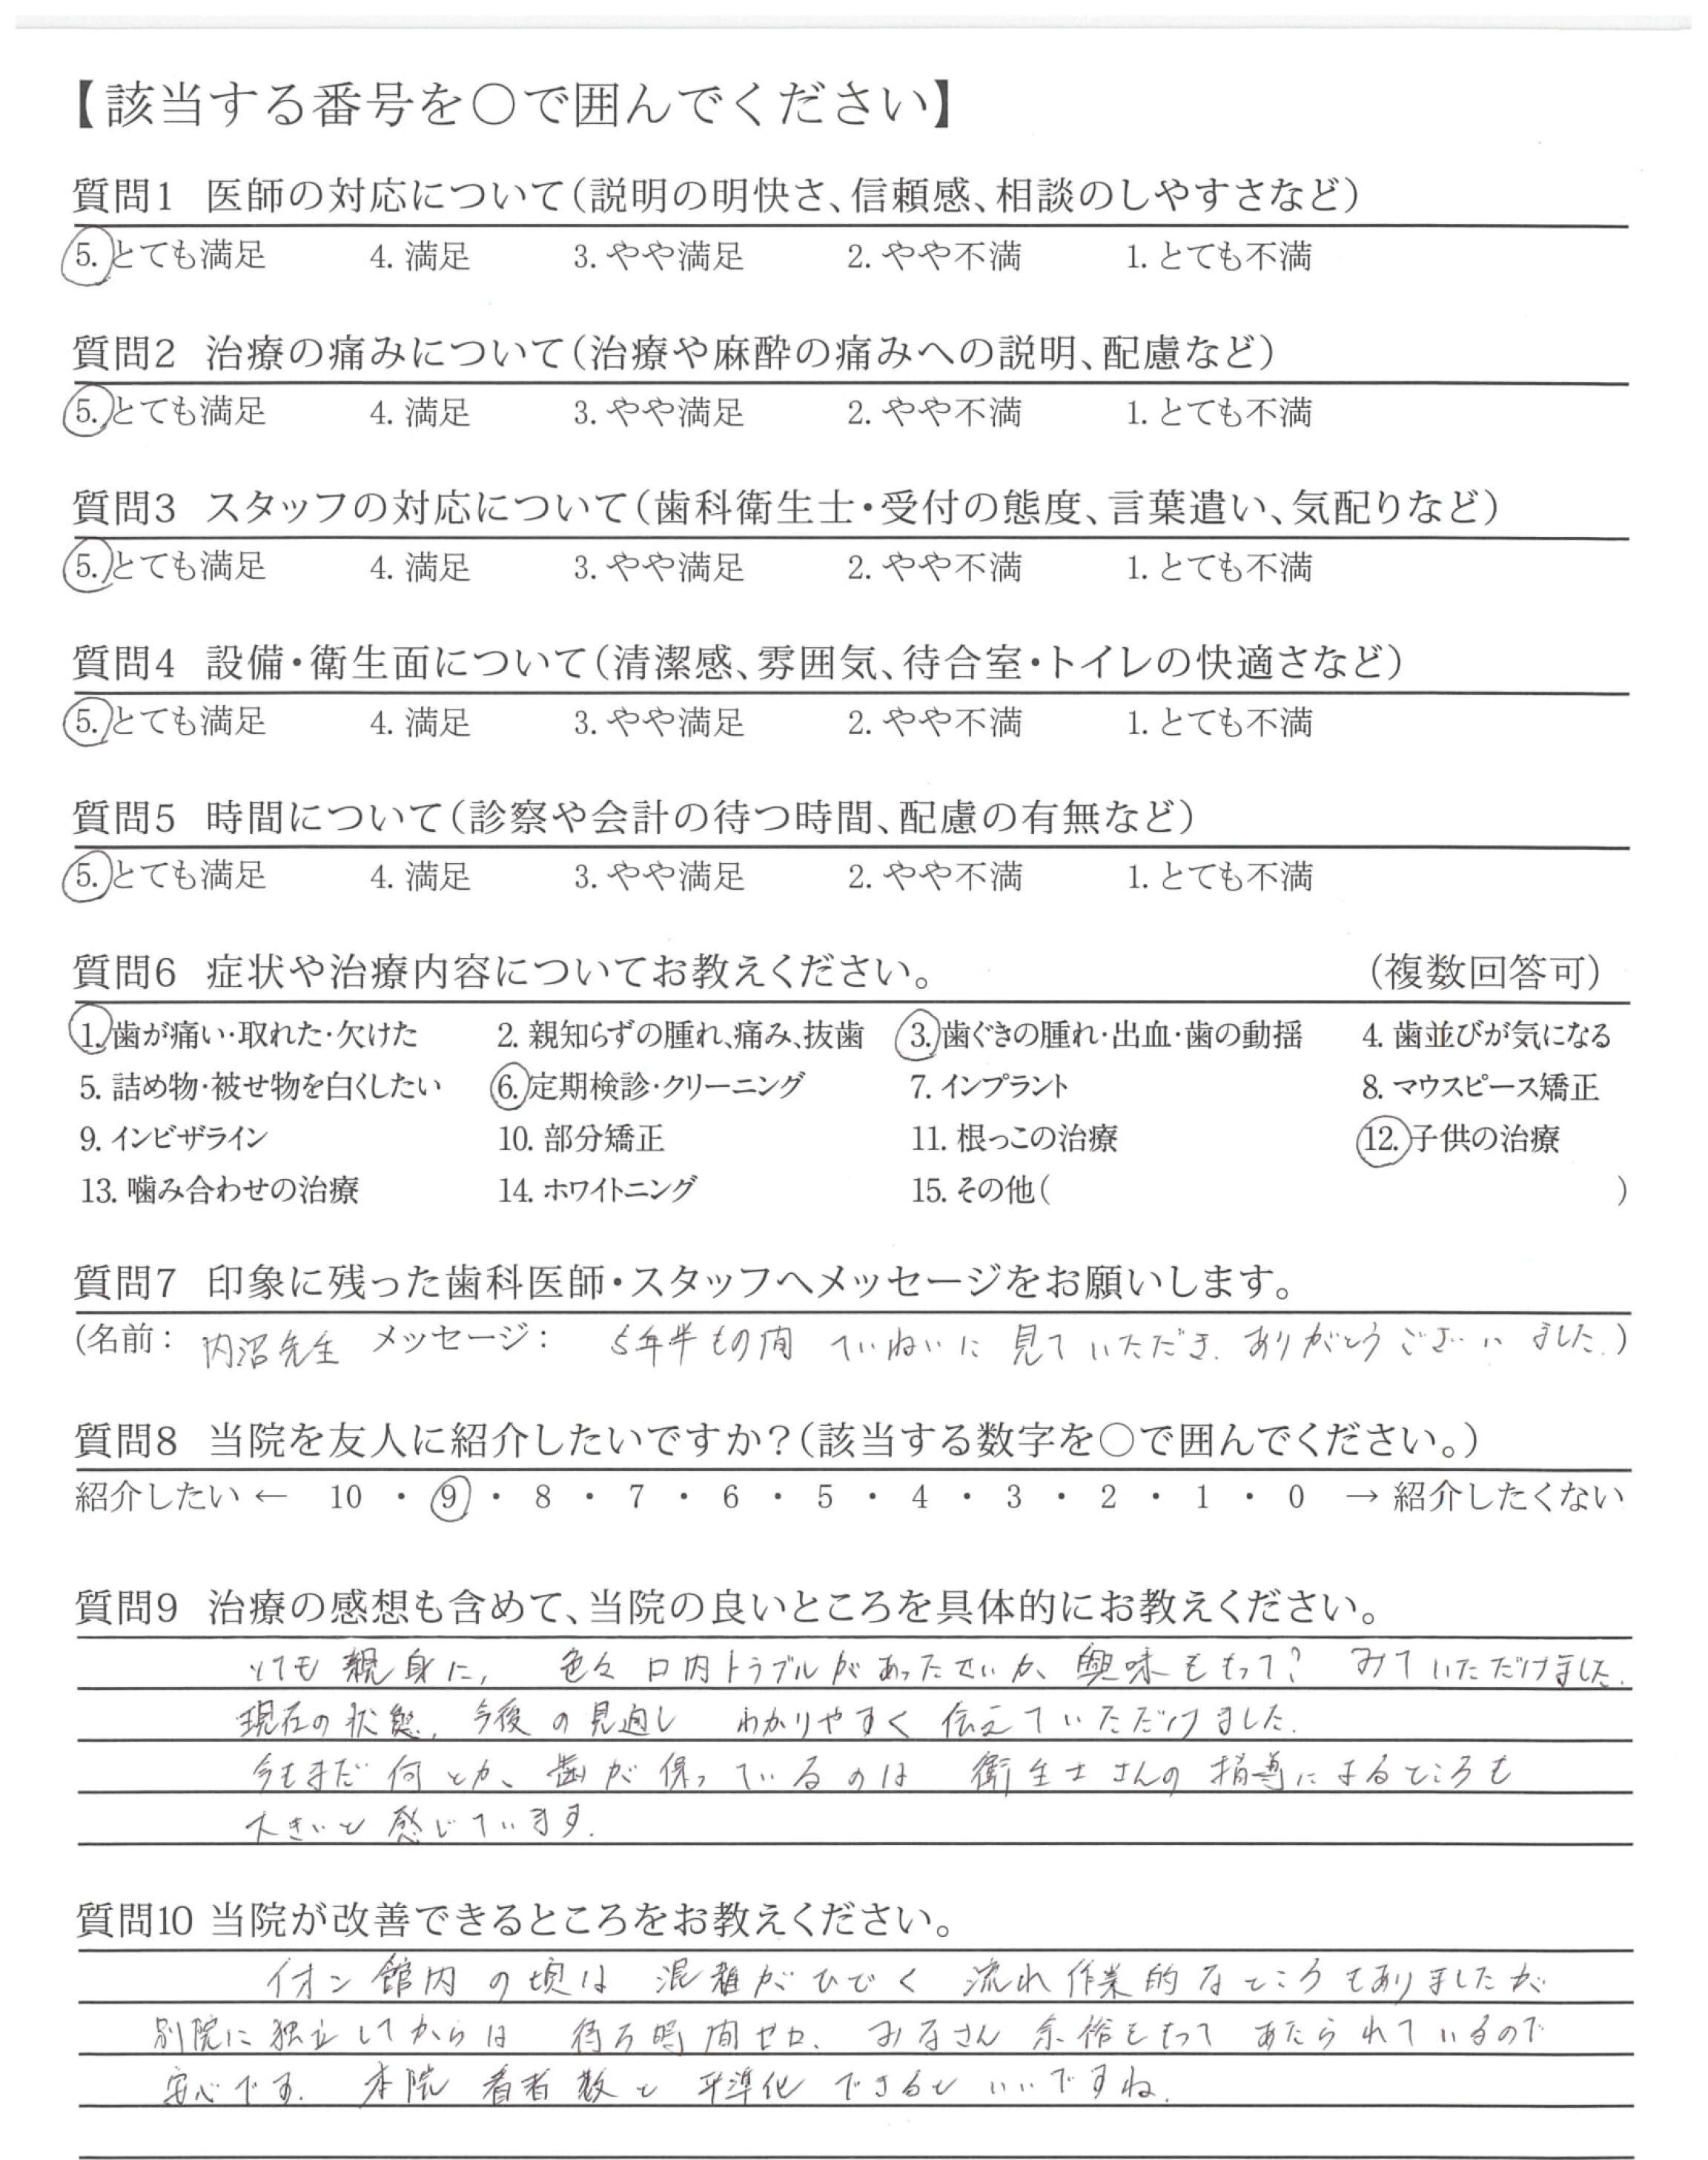 【該当する番号を○で囲んでください】
質問1 医師の対応について（説明の明快さ、信頼感、相談のしやすさなど）
5. とても満足 4. 満足 3. やや満足 2. やや不満 1. とても不満
質問2 治療の痛みについて（治療や麻酔の痛みへの説明、配慮など）
5. とても満足 4. 満足 3. やや満足 2. やや不満 1. とても不満
質問3 スタッフの対応について（歯科衛生士・受付の態度、言葉遣い、気配りなど）
5. とても満足 4. 満足 3. やや満足 2. やや不満 1. とても不満
質問4 設備・衛生面について（清潔感、雰囲気、待合室・トイレの快適さなど）
5. とても満足 4. 満足 3. やや満足 2. やや不満 1. とても不満
質問5 時間について（診察や会計の待つ時間、配慮の有無など）
5. とても満足 4. 満足 3. やや満足 2. やや不満 1. とても不満
質問6 症状や治療内容についてお教えください。 （複数回答可）
1. 歯が痛い・取れた・欠けた 2. 親知らずの腫れ、痛み、抜歯 3. 歯ぐきの腫れ・出血・歯の動揺 4. 歯並びが気になる
5. 詰め物・被せ物を白くしたい 6. 定期検診・クリーニング 7. インプラント 8. マウスピース矯正
9. インビザライン 10. 部分矯正 11. 根っこの治療 12. 子供の治療
13. 噛み合わせの治療 14. ホワイトニング 15. その他（ ）
質問7 印象に残った歯科医師・スタッフへメッセージをお願いします。
（名前： 内沼先生 メッセージ： 5年半もの間 ていねいに 見ていただき、ありがとうございました。）
質問8 当院を友人に紹介したいですか？（該当する数字を○で囲んでください。）
紹介したい ← 10 ・ 9 ・ 8 ・ 7 ・ 6 ・ 5 ・ 4 ・ 3 ・ 2 ・ 1 ・ 0 → 紹介したくない
質問9 治療の感想も含めて、当院の良いところを具体的にお教えください。
とても 親身に、 色々 口内トラブルが あったせいか、 興味をもって？ みていただけました。
現在の状態、 今後の見通し わかりやすく 伝えていただけました。
今もまだ 何とか、 歯が 保っているのは 衛生士さんの 指導によるところも
大きいと 感じています。
質問10 当院が改善できるところをお教えください。
イオン館内の頃は 混雑がひどく 流れ作業的なところもありましたが
別院に独立してからは 待ち時間ゼロ、 みなさん 余裕をもって あたられているので
安心です。 本院 患者数と 平準化 できるといいですね。